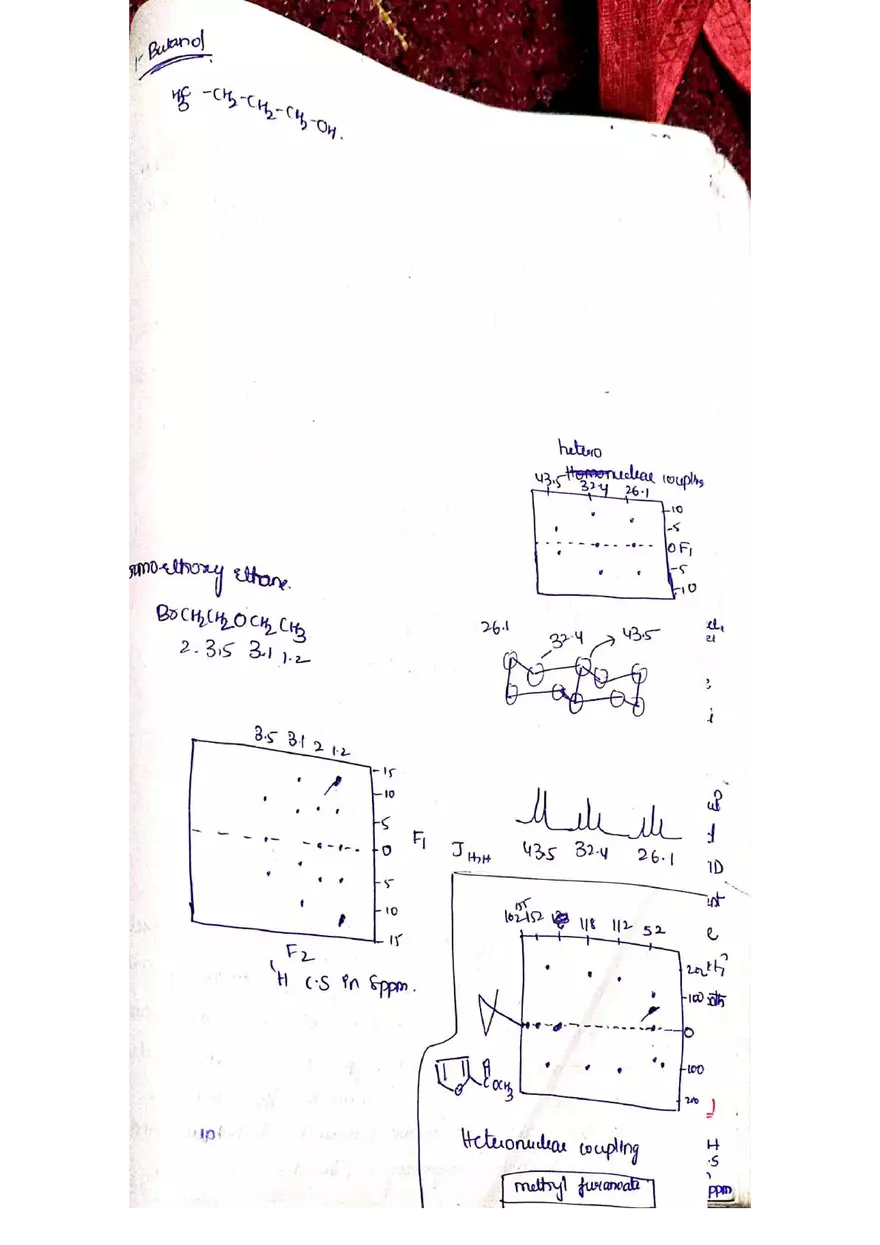 1-Butanol
H3C-CH2-CH2-CH2-OH.
hetero
Homonuclear coupling
43.5 32.4 26.1
10
5
0 F1
5
10
ethoxy ethane.
BrCH2CH2OCH2CH3
2. 3.5 3.1 1.2
26.1 32.4 43.5
3.5 3.1 2 1.2
15
10
5
0
5
10
15
F1
F2
1H C.S in δppm.
JH,H 43.5 32.4 26.1
155
162 152 118 112 52
100
0
100
200
O
C OCH3
O
Heteronuclear coupling
methyl furanoate
1D
e
H
.S
ppm